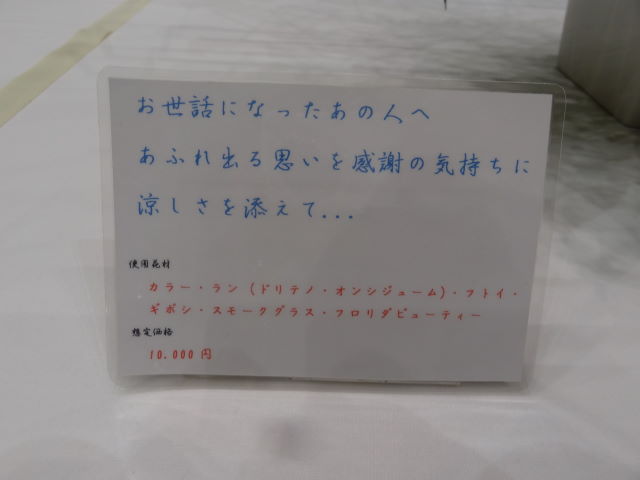 お世話になったあの人へ
あふれ出る思いを感謝の気持ちに
涼しさを添えて...
使用花材
カラー・ラン（ドリテノ・オンシジューム）・フトイ・
ギボシ・スモークグラス・フロリダビューティー
想定価格
10.000円